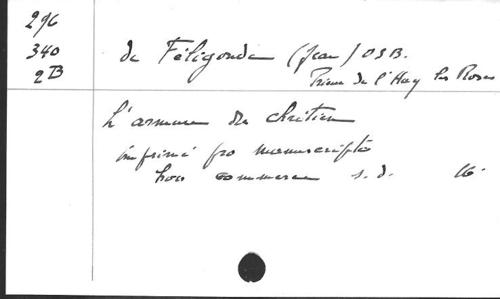 296
340
2B
de Féligonde (Jean) OSB.
Prieur de l'Hay les Roses
L'armure du chrétien
imprimé pro manuscripto
hors commerce s.d. 16°